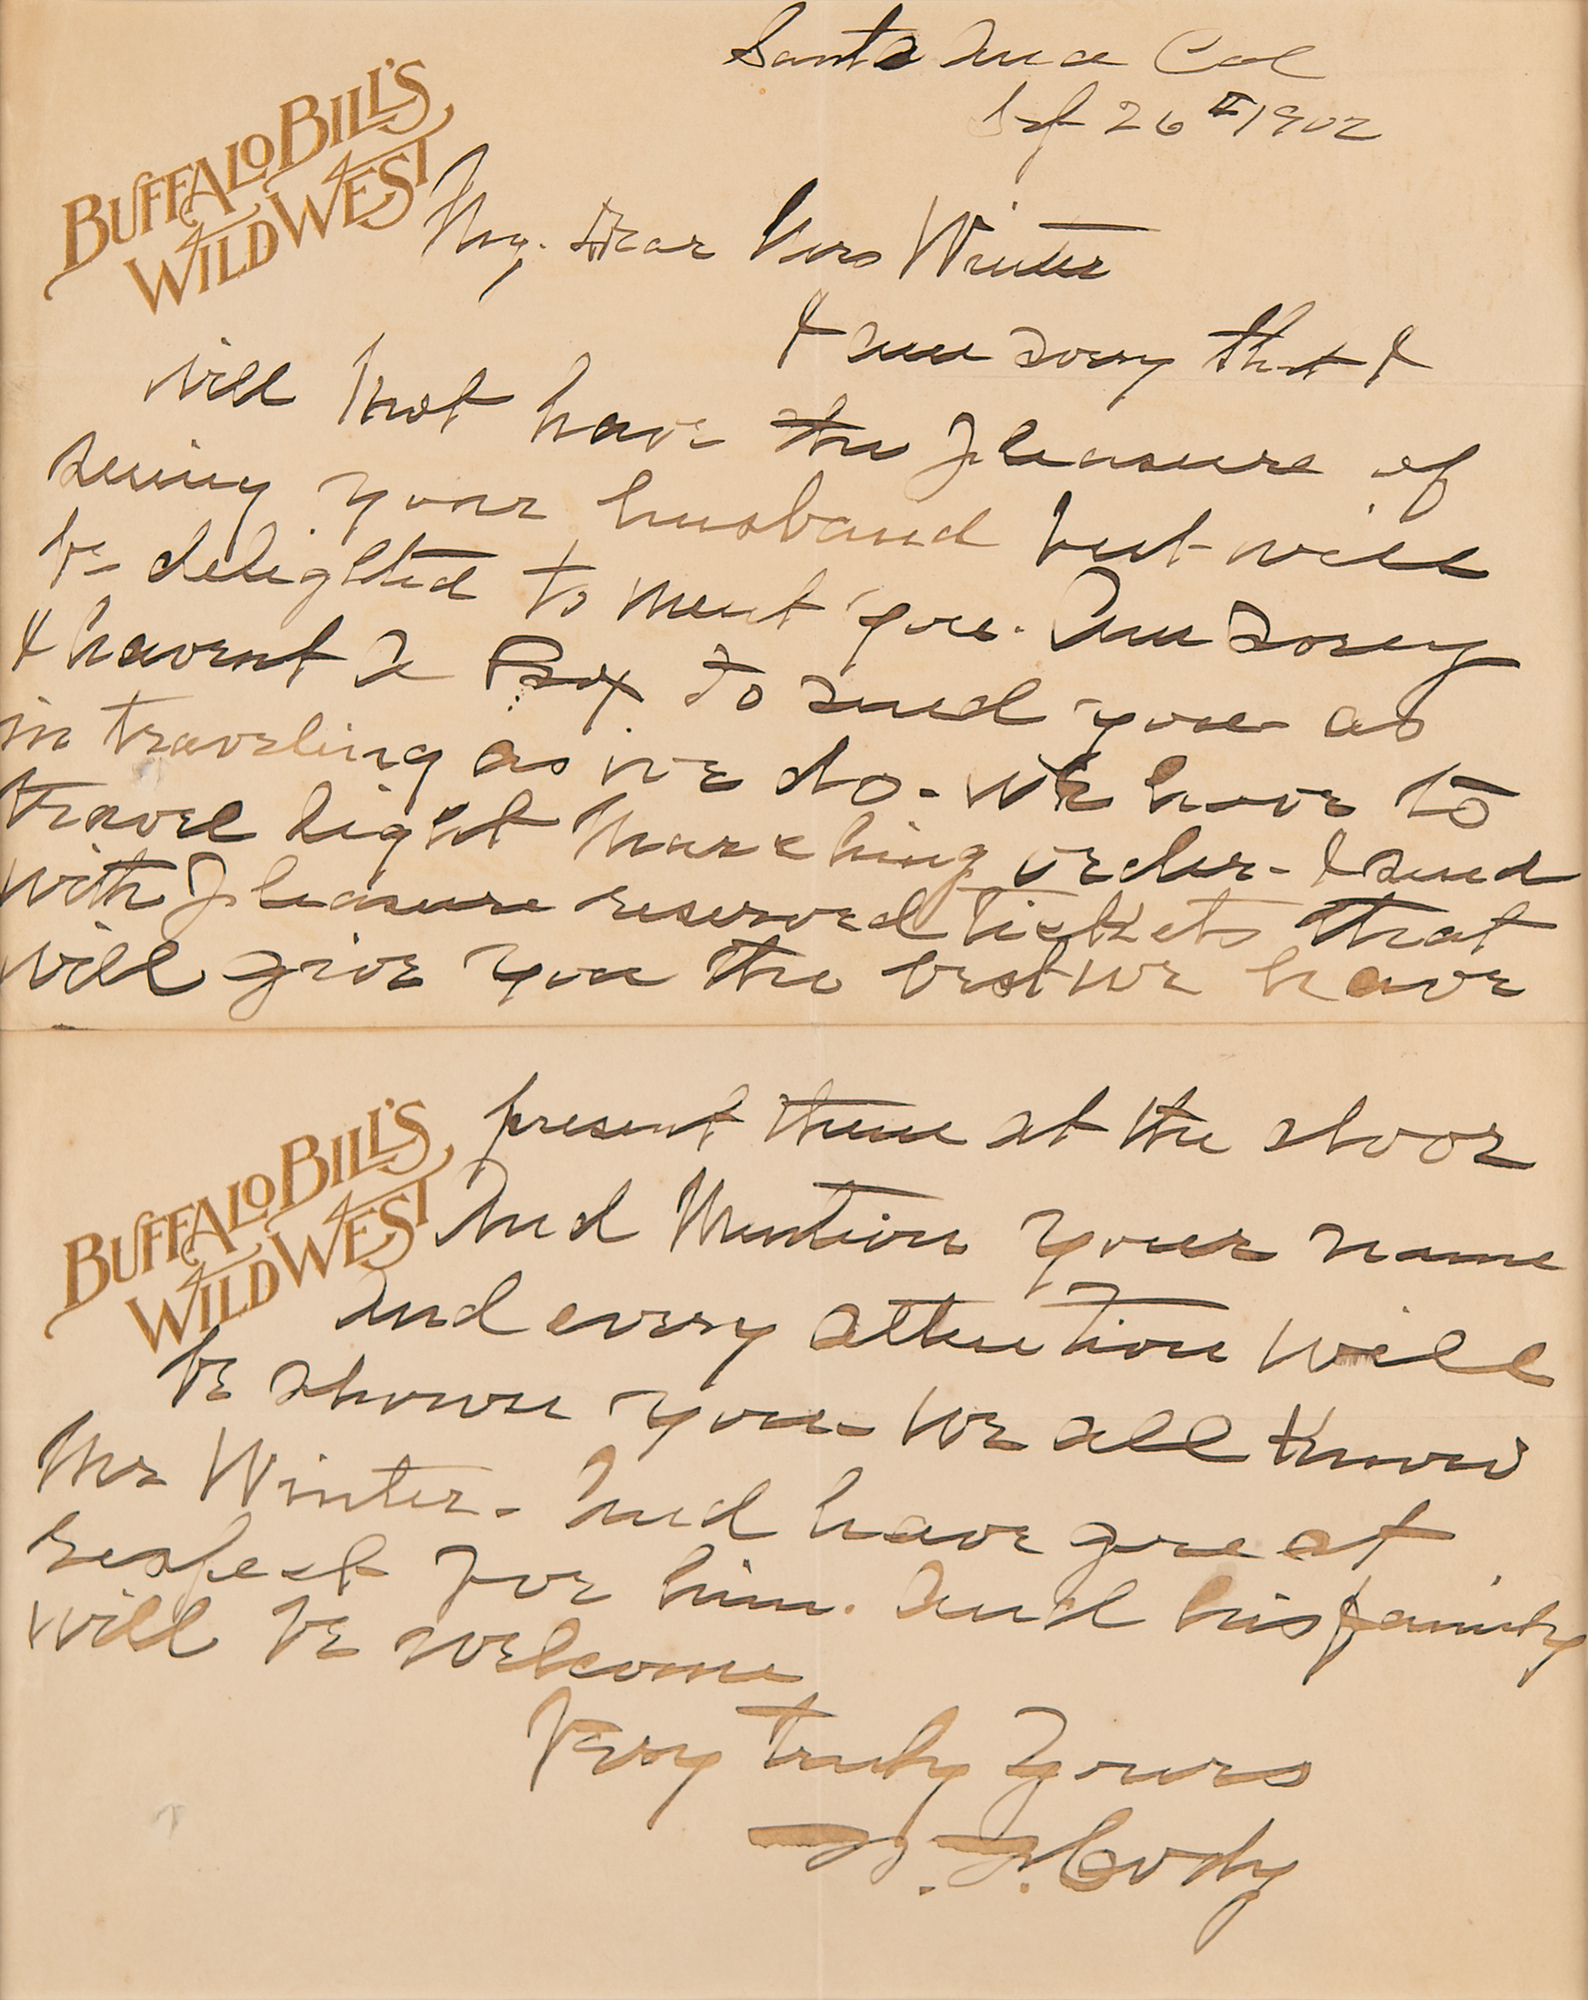 Santa Ana Cal
Sept 26th 1902
BUFFALO BILL'S
WILD WEST
My. Dear Mrs Winter
I am sorry that I
will not have the pleasure of
seeing your husband but will
be delighted to meet you. Am sorry
I havent a Box to send you as
in traveling as we do. We have to
travel light marching order- I send
with pleasure reserved tickets that
will give you the best we have
BUFFALO BILL'S
WILD WEST
present them at the door
And Mention your name
And every attention will
be shown you- We all know
Mr Winter- And have great
respect for him. And his family
will be welcome
Very truly Yours
W. F. Cody